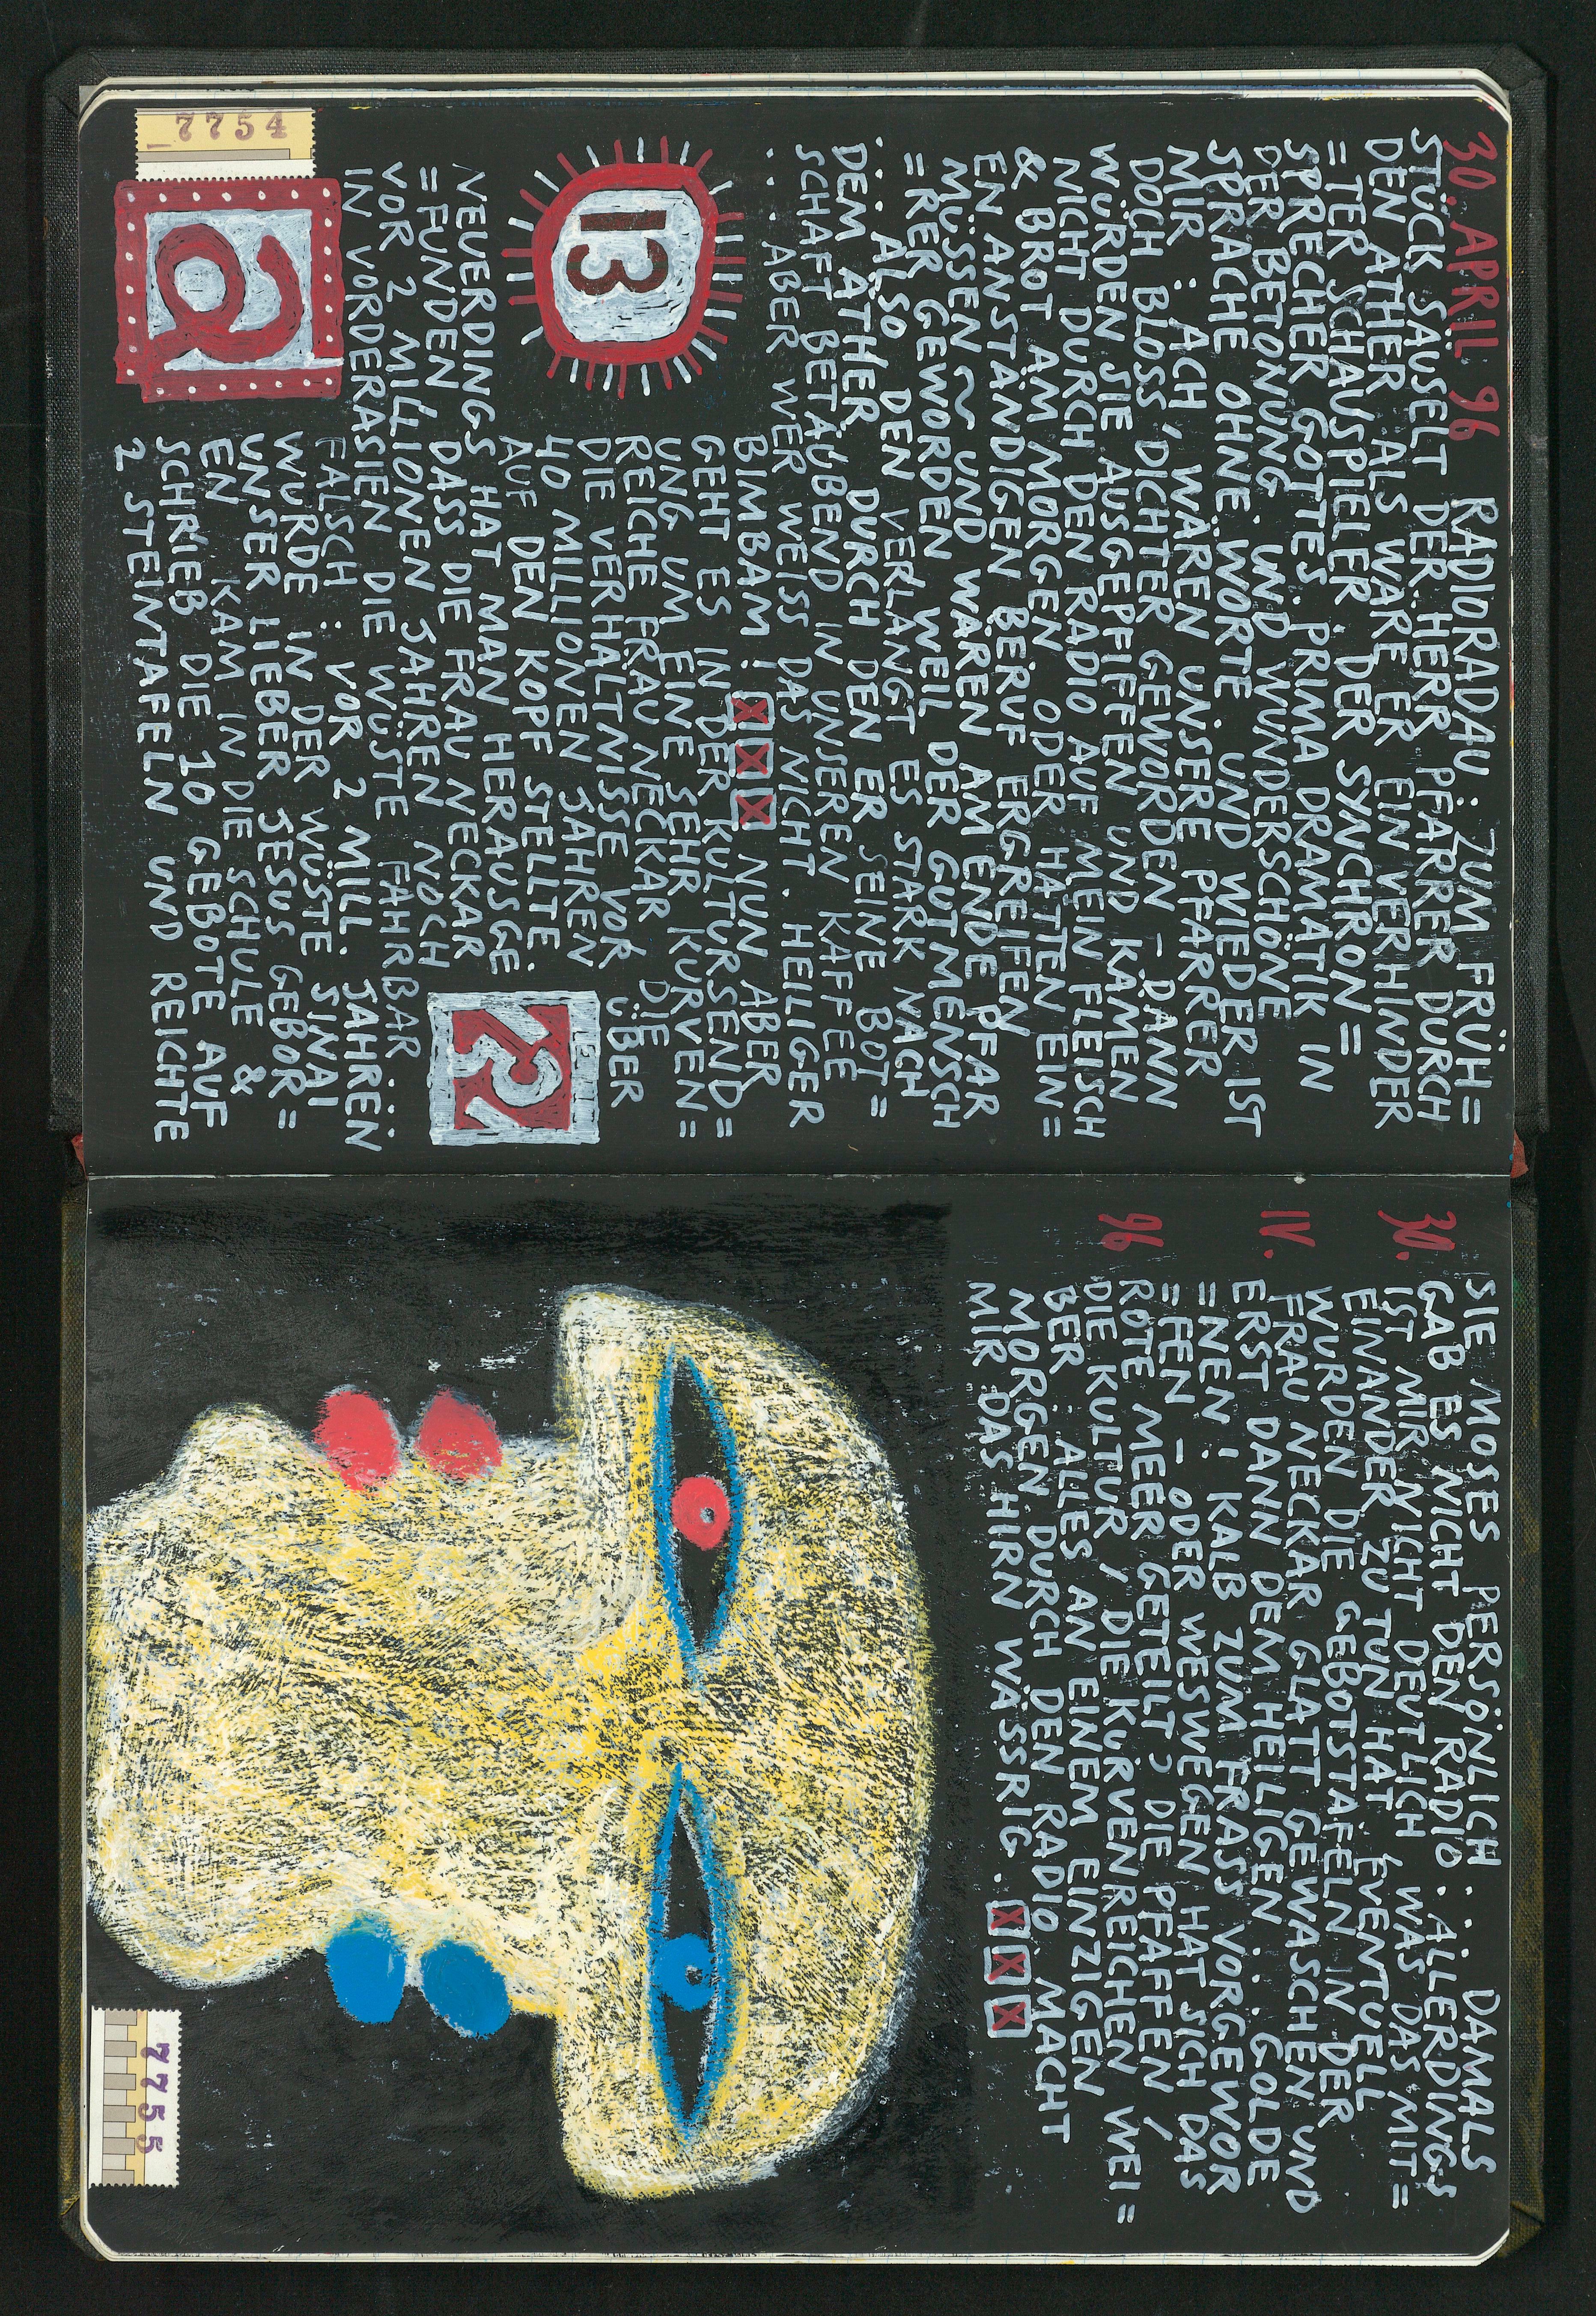 30. APRIL 96 RADIORADAU : ZUM FRÜH=
STÜCK SÄUSELT DER HERR PFARRER DURCH
DEN ÄTHER ALS WÄRE ER EIN VERHINDER
=TER SCHAUSPIELER. DER SYNCHRON=
SPRECHER GOTTES. PRIMA DRAMATIK IN
DER BETONUNG. UND WUNDERSCHÖNE
SPRACHE OHNE WORTE. UND WIEDER IST
MIR : ACH, WÄREN UNSERE PFARRER
DOCH BLOSS DICHTER GEWORDEN – DANN
WÜRDEN SIE AUSGEPFIFFEN UND KÄMEN
NICHT DURCH DEN RADIO AUF MEIN FLEISCH
& BROT AM MORGEN ODER HÄTTEN EIN=
EN ANSTÄNDIGEN BERUF ERGREIFEN
MÜSSEN ~ UND WÄREN AM ENDE PFAR
=RER GEWORDEN WEIL DER GUTMENSCH
... ALSO DEN VERLANGT ES STARK NACH
DEM ÄTHER DURCH DEN ER SEINE BOT=
SCHAFT BETÄUBEND IN UNSEREN KAFFEE
... ABER WER WEISS DAS NICHT. HEILIGER
BIMBAM ! XXX NUN ABER
GEHT ES IN DER KULTURSEND=
UNG UM EINE SEHR KURVEN=
REICHE FRAU NECKAR DIE
DIE VERHÄLTNISSE VOR ÜBER
40 MILLIONEN JAHREN
AUF DEN KOPF STELLTE.
NEUERDINGS HAT MAN HERAUSGE
=FUNDEN DASS DIE FRAU NECKAR
VOR 2 MILLIONEN JAHREN NOCH
IN VORDERASIEN DIE WÜSTE FAHRBAR
FALSCH : VOR 2 MILL. JAHREN
WURDE IN DER WÜSTE SINAI
UNSER LIEBER JESUS GEBOR=
EN KAM IN DIE SCHULE &
SCHRIEB DIE 10 GEBOTE AUF
2 STEINTAFELN UND REICHTE
13
7754
30.
IV.
96
SIE MOSES PERSÖNLICH ... DAMALS
GAB ES NICHT DEN RADIO. ALLERDINGS
IST MIR NICHT DEUTLICH, WAS DAS MIT=
EINANDER ZU TUN HAT. EVENTUELL
WURDEN DIE GEBOTSTAFELN IN DER
FRAU NECKAR GLATT GEWASCHEN UND
ERST DANN DEM HEILIGEN .. GOLDE
=NEN ! KALB ZUM FRASS VORGEWOR
=FEN – ODER WESWEGEN HAT SICH DAS
ROTE MEER GETEILT ? DIE PFAFFEN /
DIE KULTUR / DIE KURVENREICHEN WEI=
BER : ALLES AN EINEM EINZIGEN
MORGEN DURCH DEN RADIO. MACHT
MIR DAS HIRN WÄSSRIG. XXX
7755